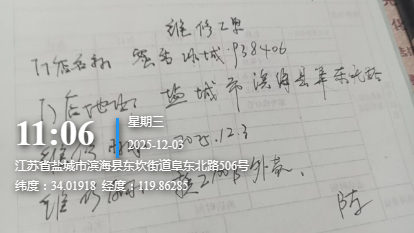 维修工单
门店名称 蜜雪冰城·938406
门店地址: 盐城市滨海县阜东北路
维修时间 2025.12.3
11:06
星期三
2025-12-03
江苏省盐城市滨海县东坎街道阜东北路506号
纬度：34.01918 经度：119.86285